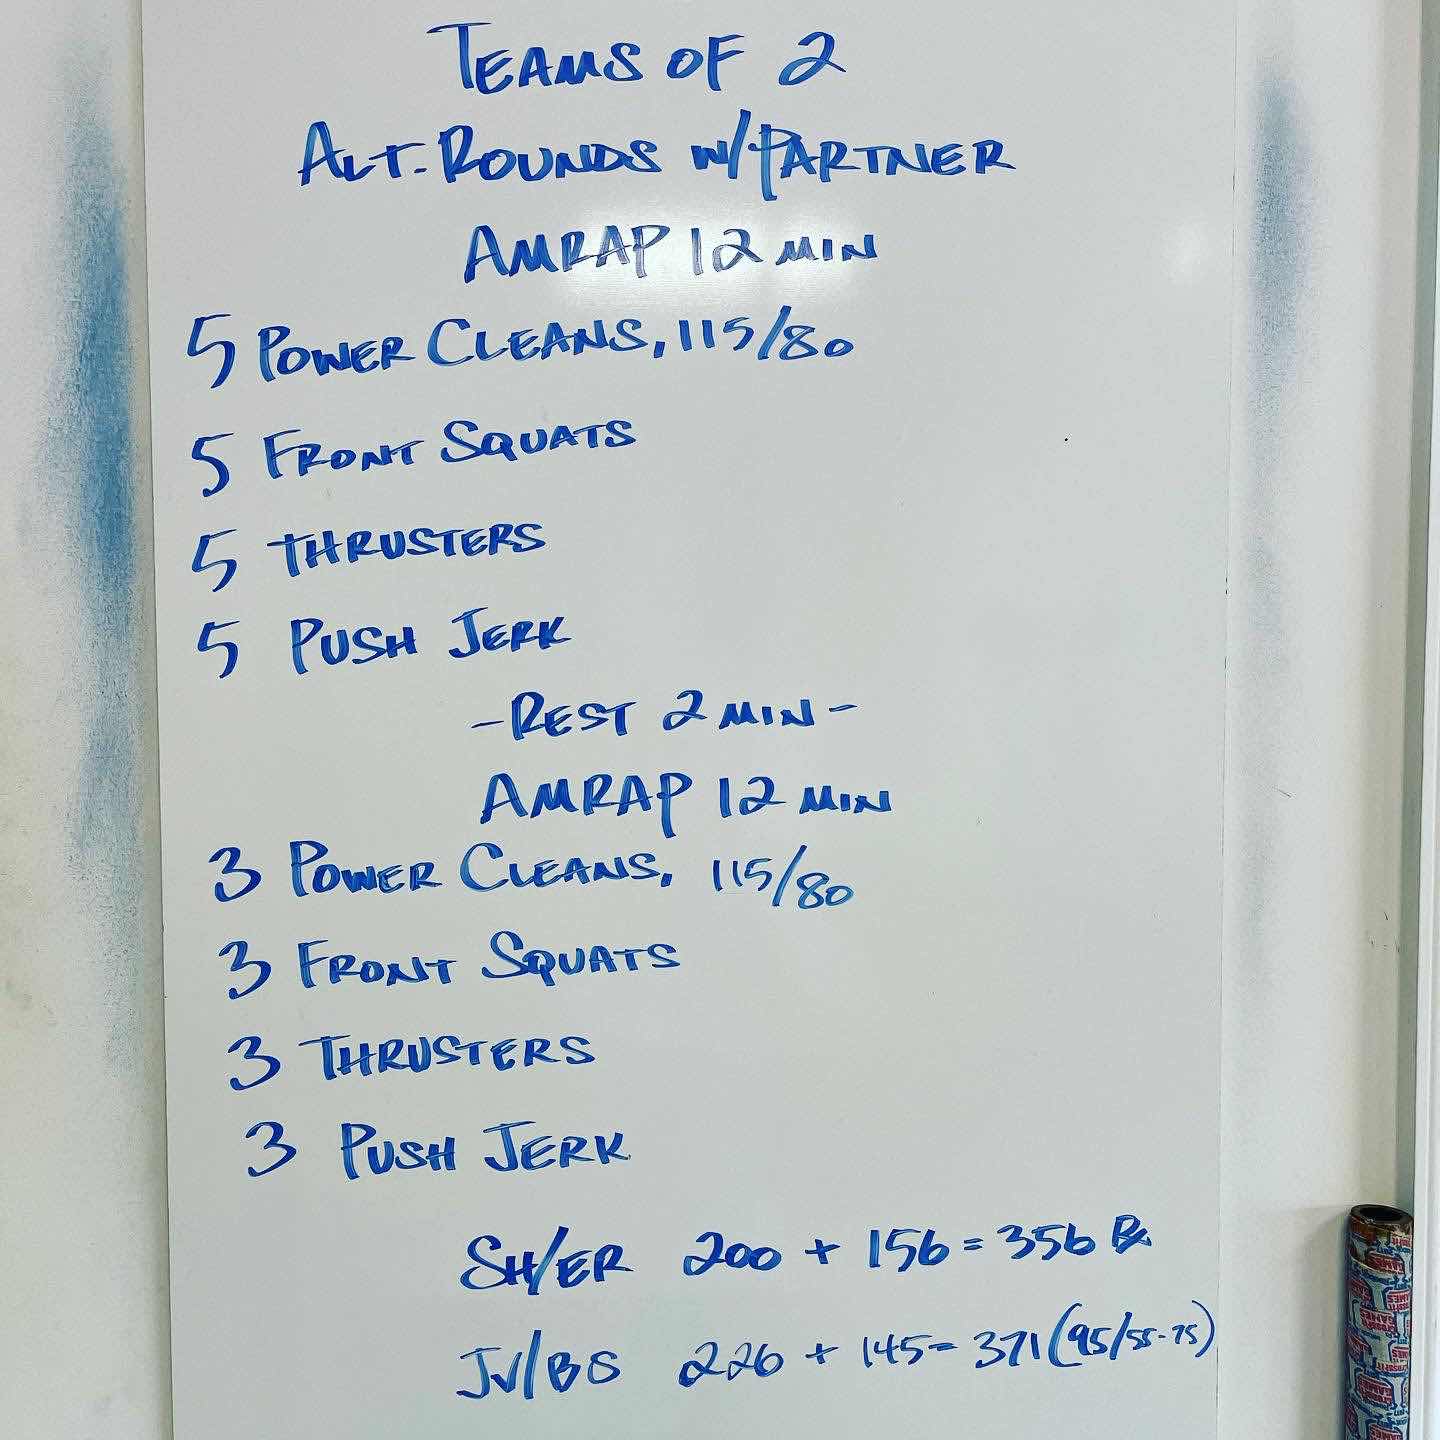 TEAMS OF 2
ALT. ROUNDS W/PARTNER
AMRAP 12 MIN
5 POWER CLEANS, 115/80
5 FRONT SQUATS
5 THRUSTERS
5 PUSH JERK
- REST 2 MIN -
AMRAP 12 MIN
3 POWER CLEANS, 115/80
3 FRONT SQUATS
3 THRUSTERS
3 PUSH JERK
SH/ER 200 + 156 = 356 Rx
JV/BS 226 + 145 = 371 (95/55-75)
CrossFit
GAMES